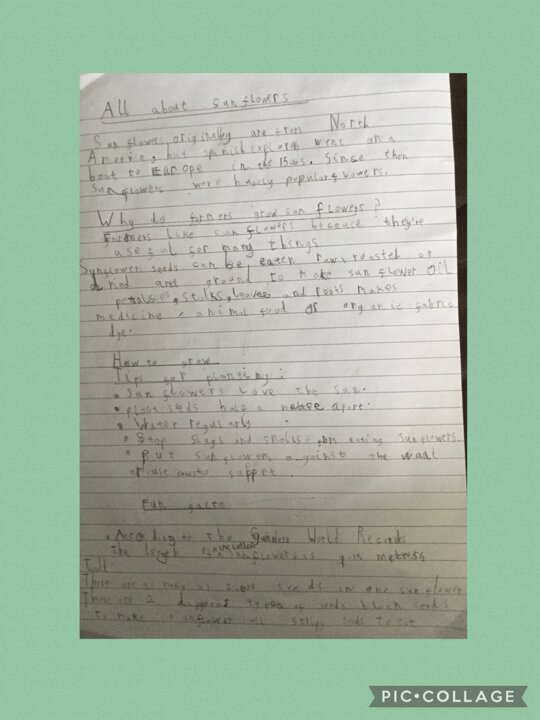 All about sunflowers
Sunflowers, originally are from North
America, but spanish explorers went on a
boat to Europe in the 1500s. Since then
Sunflowers were hugely popular flowers.
Why do farmers grow sunflowers?
Farmers like sunflowers because they're
useful for many things
Sunflower seeds can be eaten raw, roasted or
dried and ground to make sunflower oil
petals, stalks, leaves and roots makes
medicine, animal food or organic fabric
dye.
How to grow
Tips for planting:
• Sunflowers love the sun.
• plant seds half a metre apart.
• Water regularly
• Stop slugs and snails from eating sunflowers
• put sunflowers against the wall
or use to support.
Fun facts
• According to the Guinness World Records
The length the tallest sunflower is metres
Tall.
There are as many as 2,000 seeds in one sunflower
There are 2 different types of seeds black seeds
to make sunflower oil stripy seeds to eat
PIC•COLLAGE